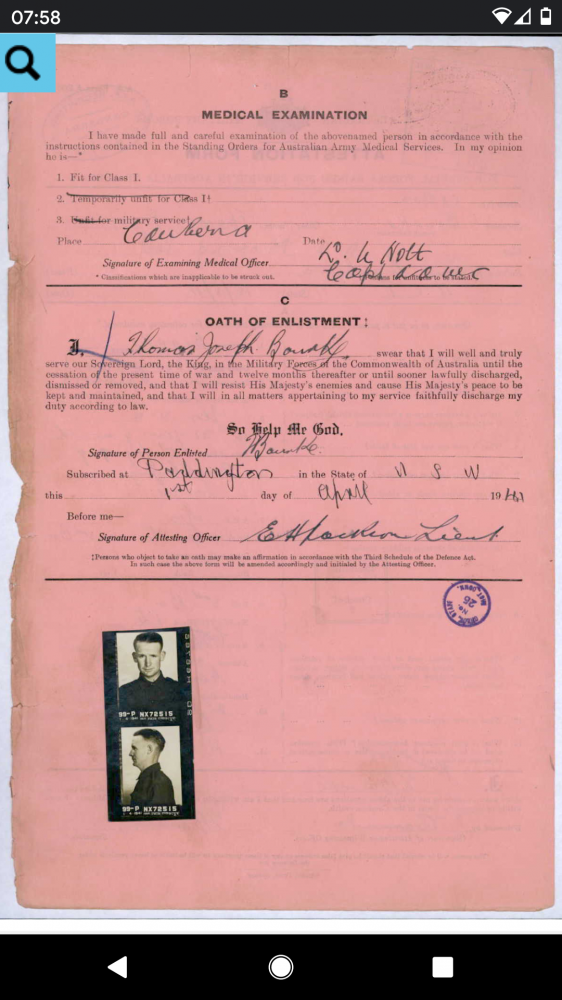 07:58
B
MEDICAL EXAMINATION
I have made full and careful examination of the abovenamed person in accordance with the
instructions contained in the Standing Orders for Australian Army Medical Services. In my opinion
he is—*
1. Fit for Class I.
2. Temporarily unfit for Class I†
3. Unfit for military service†
Place Canberra Date
Signature of Examining Medical Officer Holt
* Classifications which are inapplicable to be struck out. Capt
C
OATH OF ENLISTMENT‡
I, Thomas Joseph Bourke, swear that I will well and truly
serve our Sovereign Lord, the King, in the Military Forces of the Commonwealth of Australia until the
cessation of the present time of war and twelve months thereafter or until sooner lawfully discharged,
dismissed or removed, and that I will resist His Majesty's enemies and cause His Majesty's peace to be
kept and maintained, and that I will in all matters appertaining to my service faithfully discharge my
duty according to law.
So Help Me God.
Signature of Person Enlisted Bourke
Subscribed at Paddington in the State of N S W
this 1st day of April 19
Before me—
Signature of Attesting Officer Lieut
‡Persons who object to take an oath may make an affirmation in accordance with the Third Schedule of the Defence Act.
In such case the above form will be amended accordingly and initialed by the Attesting Officer.
No.
26
99-P NX72515
99-P NX72515